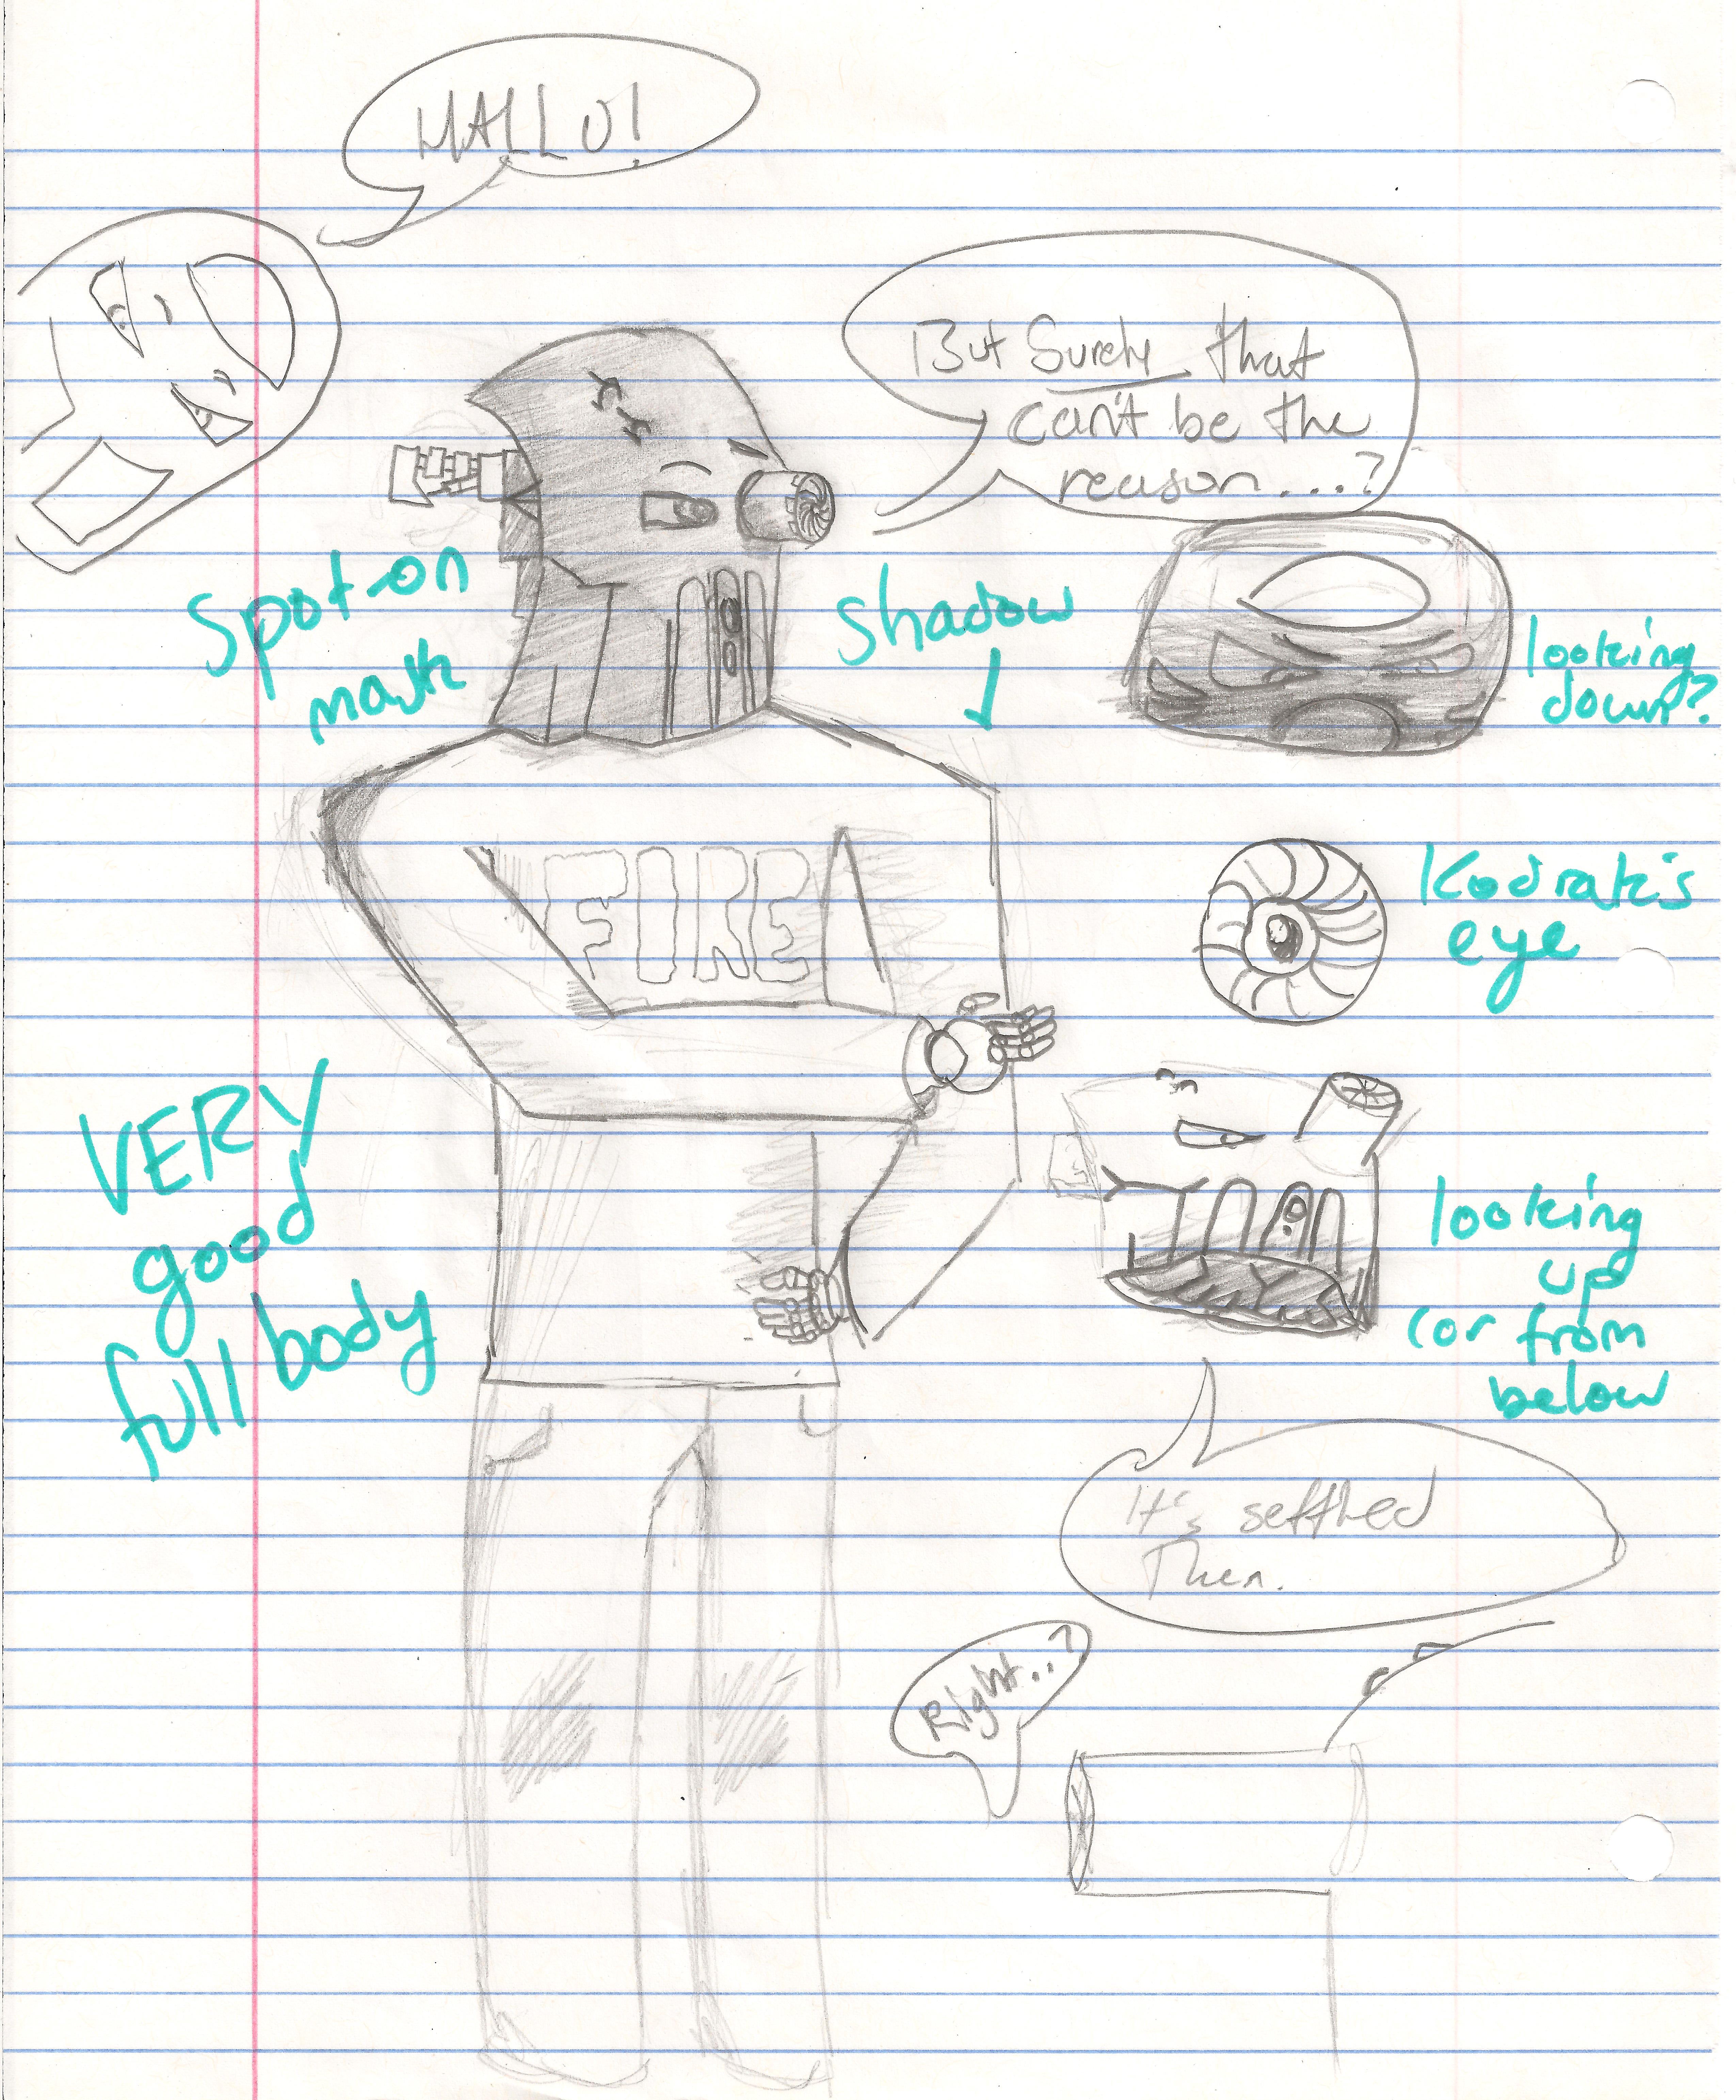 HALLO!
But Surely that
can't be the
reason....?
Spot-on
mask
Shadow
looking
down?
FIRE
Kodrak's
eye
VERY
good
full body
looking
up
(or from
below
It's setthed
Then.
Right..?